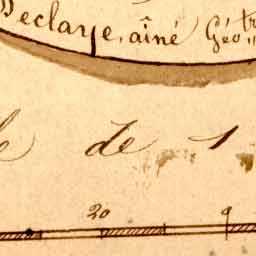 Declarye, aîné Géo.tr
de 1
20 9